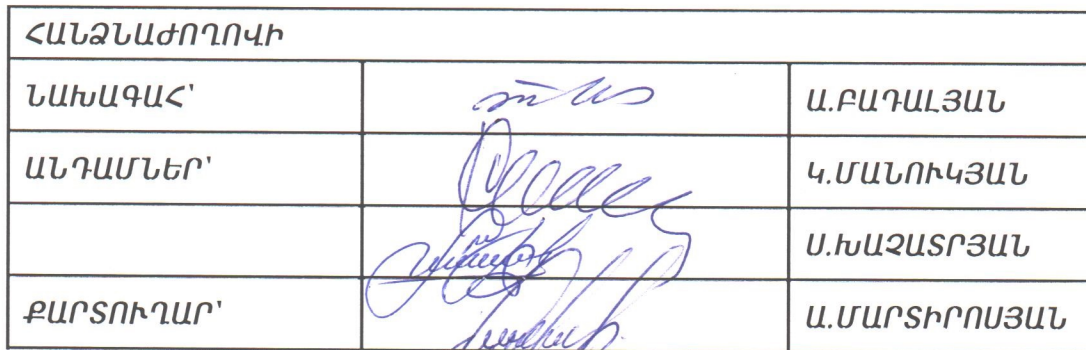 ՀԱՆՁՆԱԺՈՂՈՎԻ
ՆԱԽԱԳԱՀ՝ Ա.ԲԱԴԱԼՅԱՆ
ԱՆԴԱՄՆԵՐ՝ Կ.ՄԱՆՈՒԿՅԱՆ
Ս.ԽԱՉԱՏՐՅԱՆ
ՔԱՐՏՈՒՂԱՐ՝ Ա.ՄԱՐՏԻՐՈՍՅԱՆ